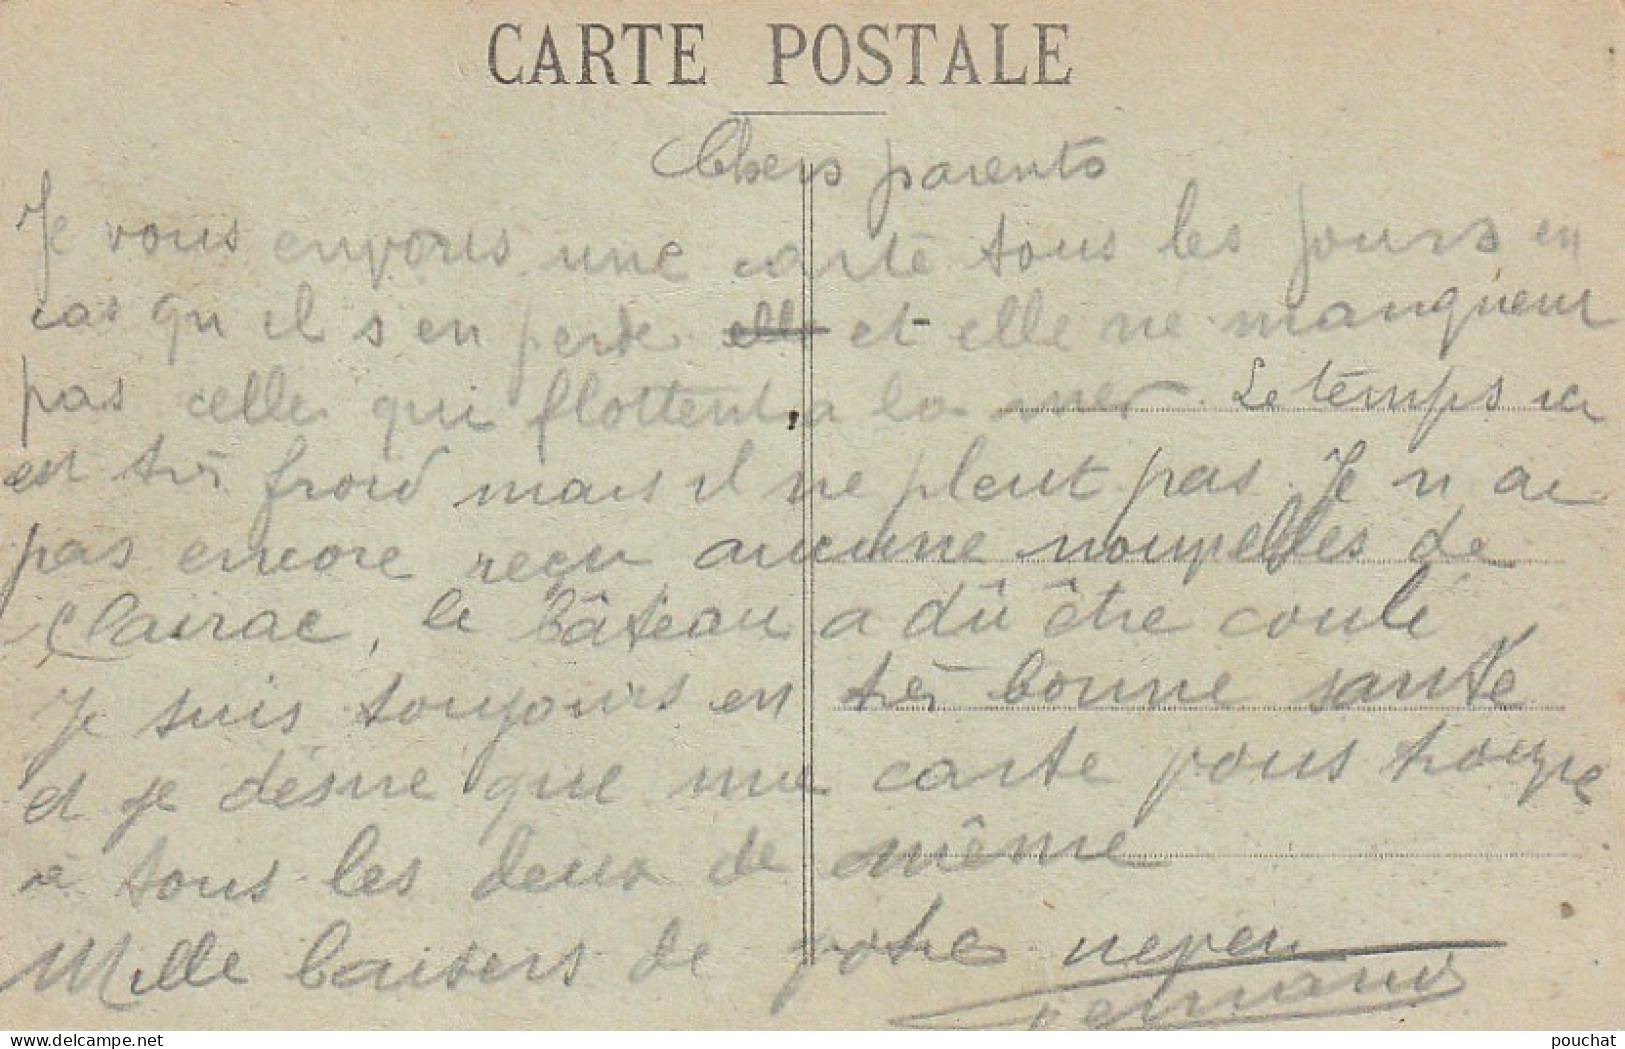 CARTE POSTALE
Chers parents
Je vous envoris une carte tous les jours en
cas qu il s en perde elle et elle ne manqueur
pas celle qui flottent a la mer. Le temps ici
est très froid mais il ne pleut pas. Je n ai
pas encore reçu aucune nouvelles de
Clairac, le bâteau a dû être coulé
Je suis toujours en très bonne santé
et je désire que ma carte vous trouve
à tous les deux de même
Mille baisers de votre neveu
Fernand
pouchat